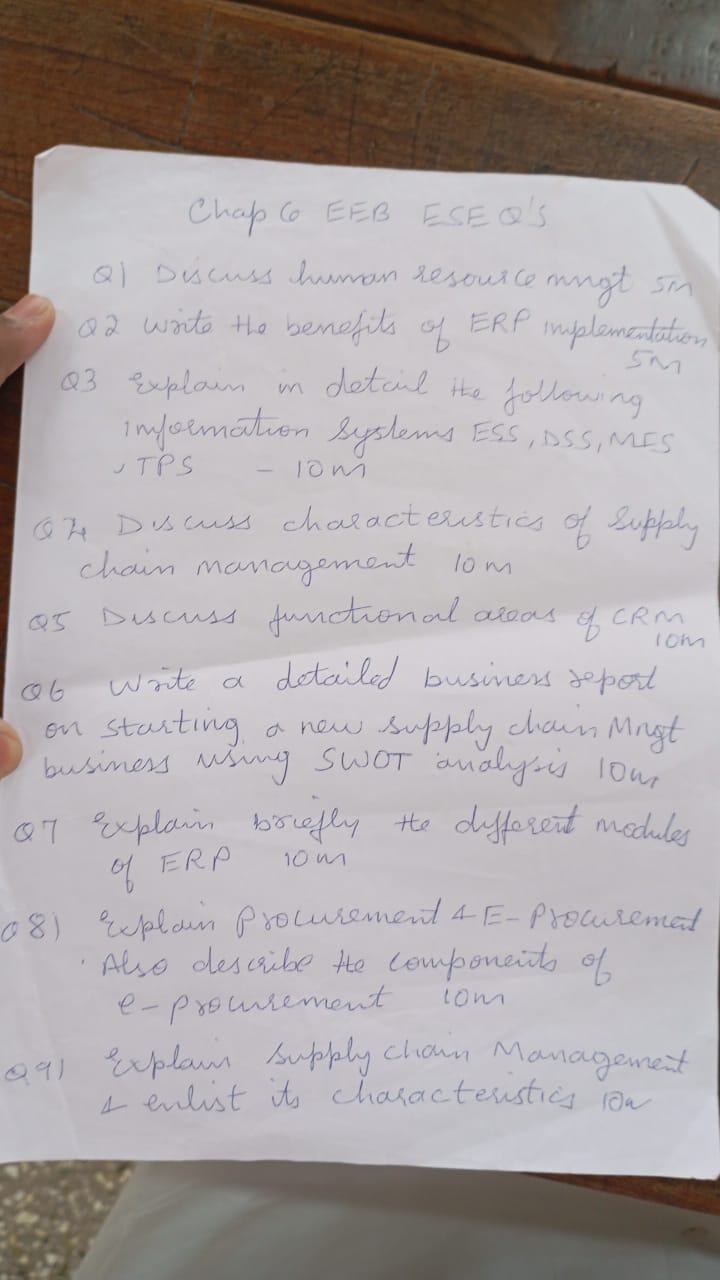 Chap 6 EEB ESE Q'S
Q1 Discuss human resource mngt 5M
Q2 Write the benefits of ERP implementation
5M
Q3 Explain in detail the following
information systems ESS, DSS, MIS
, TPS - 10M
Q4 Discuss characteristics of Supply
chain management 10m
Q5 Discuss functional areas of CRM
10m
Q6 Write a detailed business report
on starting a new supply chain Mngt
business using SWOT analysis 10m
Q7 Explain briefly the different modules
of ERP 10m
Q8) Explain Procurement & E-Procurement
Also describe the components of
e-procurement 10m
Q9) Explain Supply chain Management
& enlist its characteristics 10m